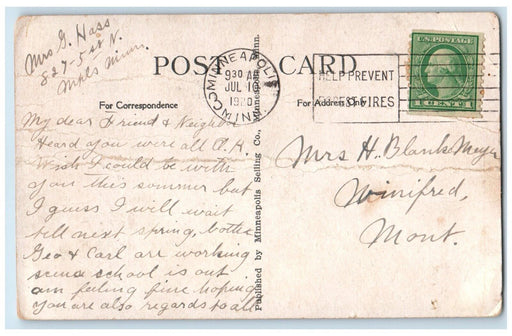 Mrs G. Hass
827-5 st N.
Mpls Minn.
POST CARD
MINNEAPOLIS
MINN.
9 30 A
JUL 10
1920
HELP PREVENT
FOREST FIRES
U.S. POSTAGE
For Correspondence
For Address Only
My dear Friend & Neighbor
Heard you were all O.K.
Wish I could be with
you this summer but
I guess I will wait
till next spring, bothe
Geo & Carl are working
scince school is out
am feeling fine hoping
you are also regards to all
Published by Minneapolis Selling Co., Minneapolis, Minn.
Mrs H. Blankemeyer
Winifred,
Mont.